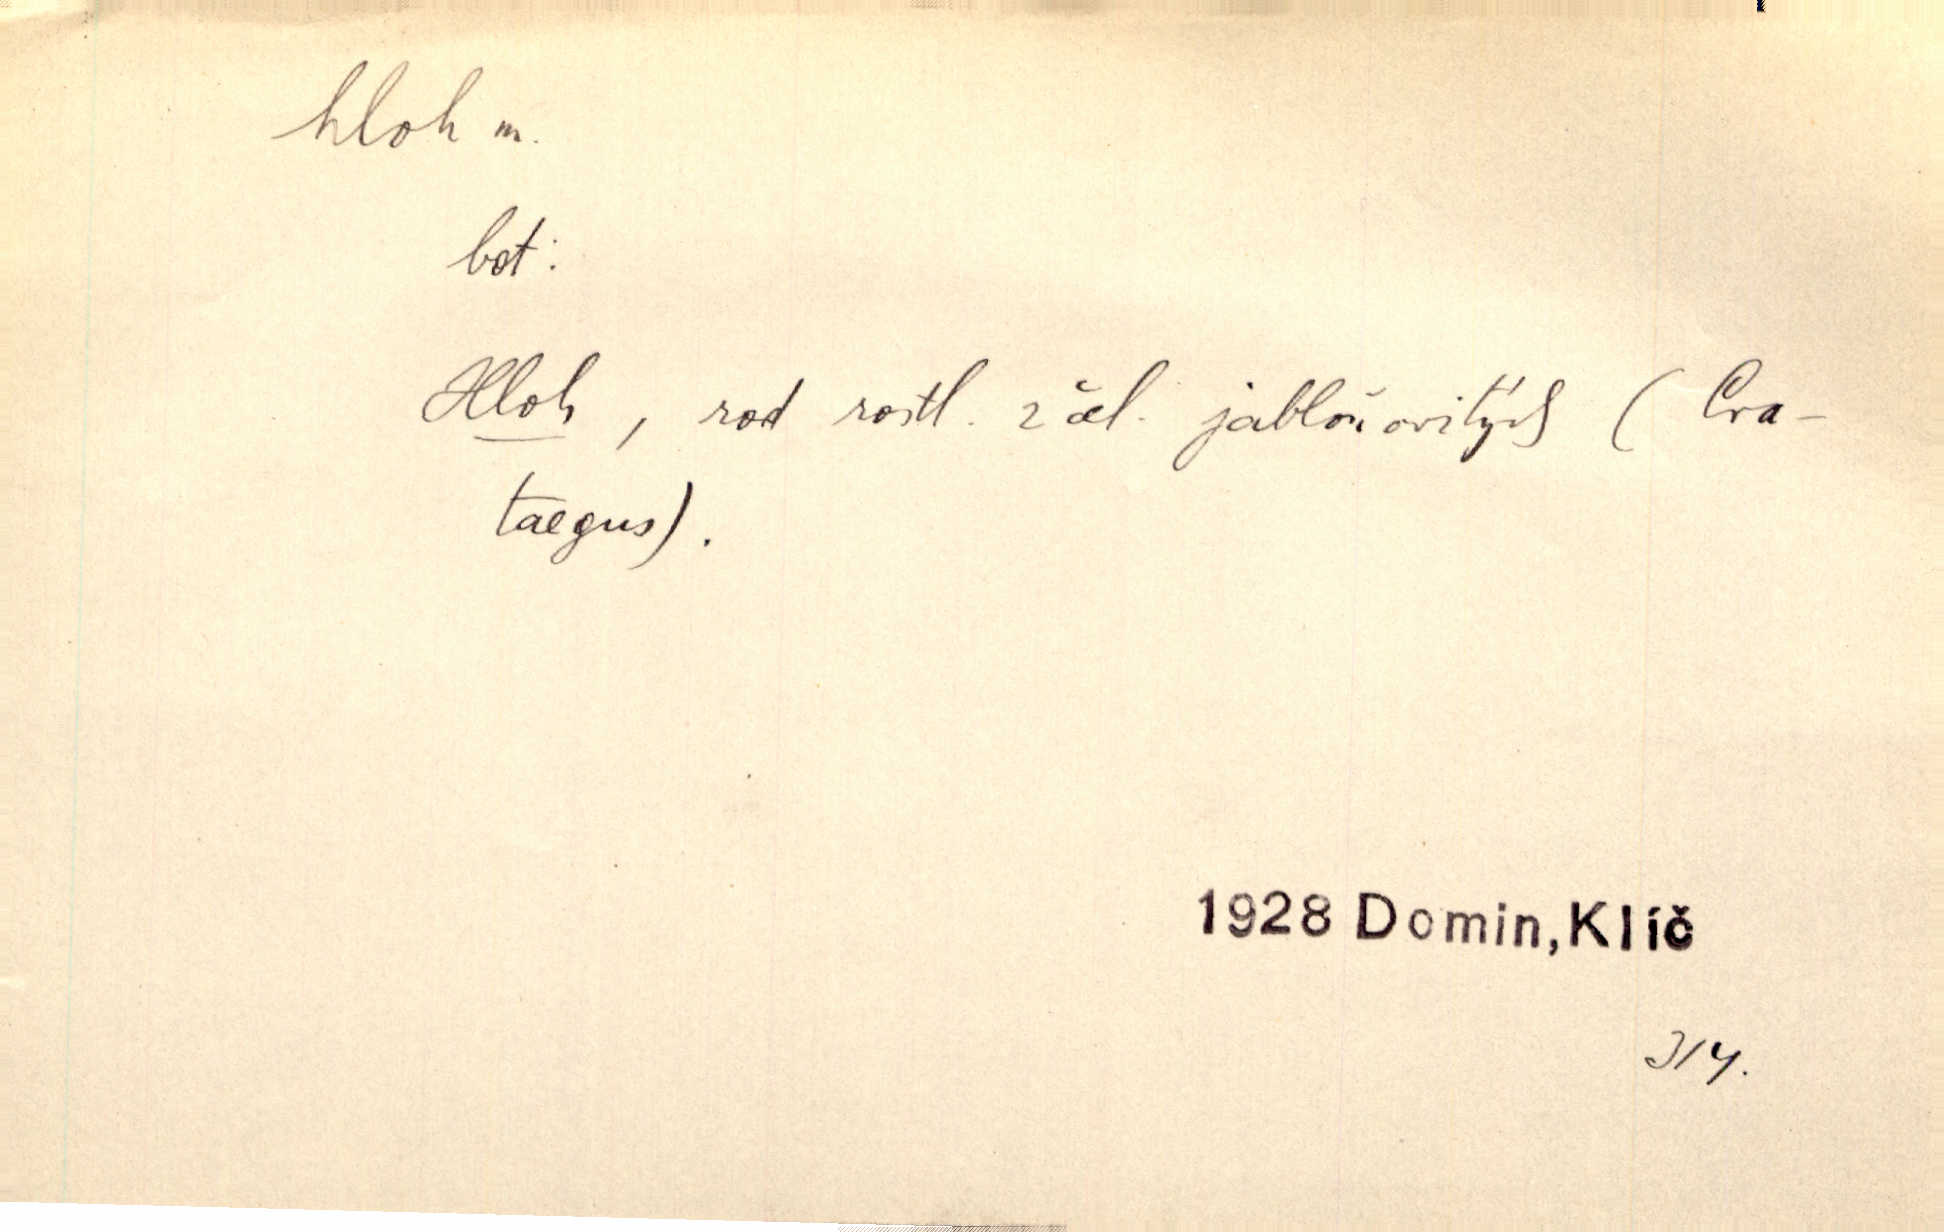 hloh m.
bot:
Hloh, rod rostl. z čel. jabloňovitých (Cra-
taegus).
1928 Domin, Klíč
314.